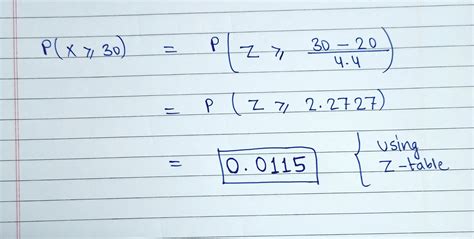 P(X ⩾ 30) = P(Z ⩾ (30 - 20)/4.4)
= P (Z ⩾ 2.2727)
= 0.0115 { using Z-table